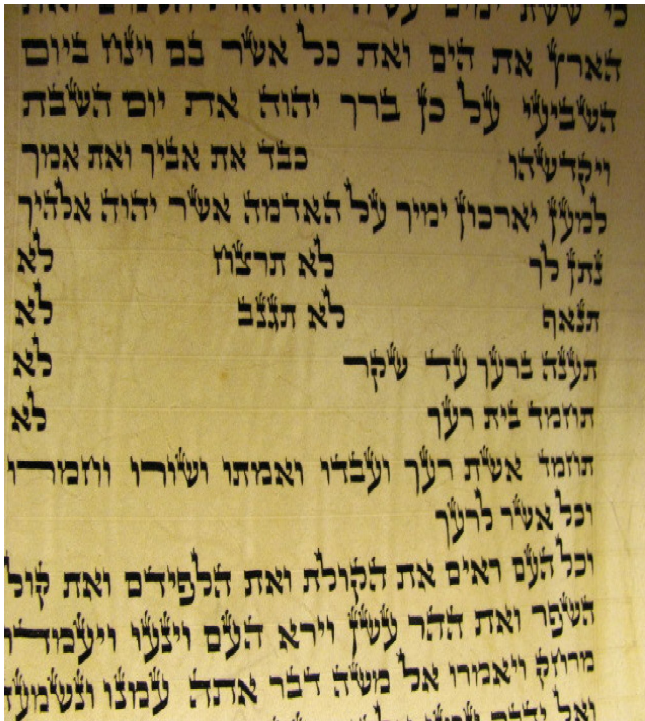 כי ששת ימים עשה יהוה את השמים ואת
הארץ את הים ואת כל אשר בם וינח ביום
השביעי על כן ברך יהוה את יום השבת
ויקדשהו כבד את אביך ואת אמך
למען יארכון ימיך על האדמה אשר יהוה אלהיך
נתן לך לא תרצח לא
תנאף לא תגנב לא
תענה ברעך עד שקר לא
תחמד בית רעך לא
תחמד אשת רעך ועבדו ואמתו ושורו וחמרו
וכל אשר לרעך
וכל העם ראים את הקולת ואת הלפידם ואת קול
השפר ואת ההר עשן וירא העם וינעו ויעמדו
מרחק ויאמרו אל משה דבר אתה עמנו ונשמעה
ואל ידבר